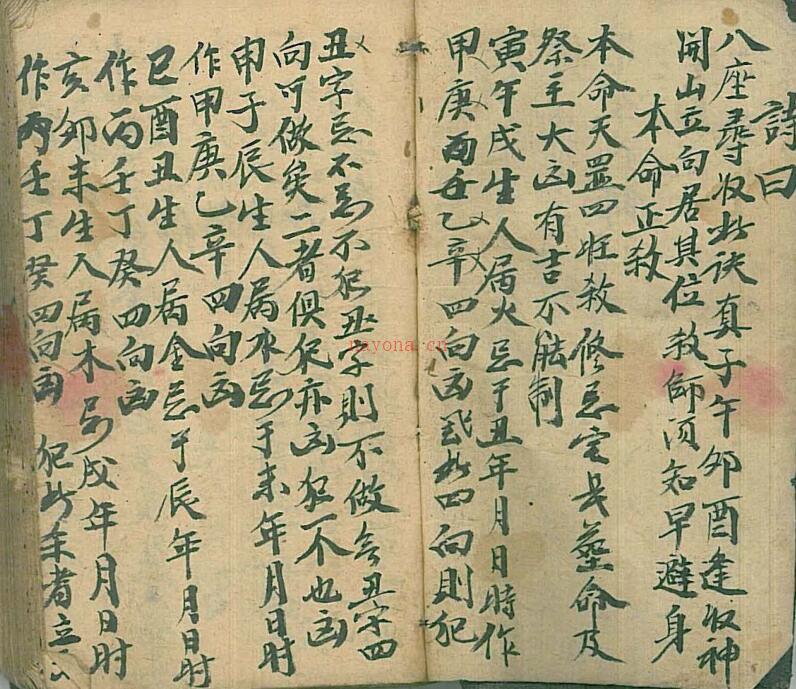 詩曰
八座尋收此訣真子午卯酉逢收神
開山立向居其位教師須知早避身
本命正殺
本命天罡四旺殺修忌宅長塟命及
祭主大凶有吉不能制
寅午戌生人屬火忌于丑年月日時作
甲庚丙壬乙辛四向凶 此四向則犯
丑字忌不為不犯丑字則不做含丑字四
向可做矣二者俱犯亦凶犯一不也凶
申子辰生人屬水忌于未年月日时
作甲庚乙辛四向凶
巳酉丑生人屬金忌于辰年月日时
作丙壬丁癸四向凶
亥卯未生人屬木忌戌年月日时
作丙壬丁癸四向凶 犯此 者立
nayona.cn